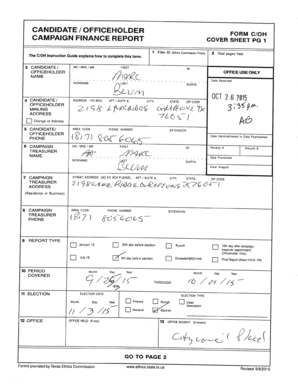 CANDIDATE / OFFICEHOLDER
CAMPAIGN FINANCE REPORT
FORM C/OH
COVER SHEET PG 1
The C/OH Instruction Guide explains how to complete this form.
1 Filer ID (Ethics Commission Filers)
2 Total pages filed:
3 CANDIDATE / OFFICEHOLDER NAME
MS / MRS / MR FIRST MI
Marc
NICKNAME LAST SUFFIX
Blum
OFFICE USE ONLY
Date Received
OCT 26 2015
3:35 p.m.
4 CANDIDATE / OFFICEHOLDER MAILING ADDRESS
Change of Address
ADDRESS / PO BOX; APT / SUITE #; CITY; STATE; ZIP CODE
2198
76051
5 CANDIDATE/ OFFICEHOLDER PHONE
AREA CODE PHONE NUMBER EXTENSION
(817) 8056065
Date Hand-delivered or Date Postmarked
6 CAMPAIGN TREASURER NAME
MS / MRS / MR FIRST MI
Mr Marc
NICKNAME LAST SUFFIX
Blum
Receipt # Amount $
Date Processed
Date Imaged
7 CAMPAIGN TREASURER ADDRESS
(Residence or Business)
STREET ADDRESS (NO PO BOX PLEASE); APT / SUITE #; CITY; STATE; ZIP CODE
2198 76051
8 CAMPAIGN TREASURER PHONE
AREA CODE PHONE NUMBER EXTENSION
(817) 8056065
9 REPORT TYPE
January 15
30th day before election
Runoff
15th day after campaign treasurer appointment (Officeholder Only)
July 15
8th day before election
Exceeded $500 limit
Final Report (Attach C/OH - FR)
10 PERIOD COVERED
Month Day Year
9/25/15
THROUGH
Month Day Year
10/21/15
11 ELECTION
ELECTION DATE
Month Day Year
11/3/15
ELECTION TYPE
Primary
Runoff
Other Description
General
Special
12 OFFICE
OFFICE HELD (if any)
13 OFFICE SOUGHT (if known)
City council
GO TO PAGE 2
Forms provided by Texas Ethics Commission
www.ethics.state.tx.us
Revised 9/8/2015